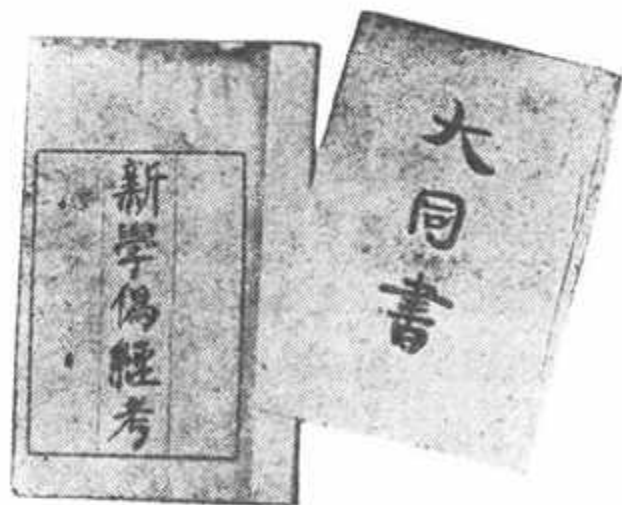 新學僞經考
大同書